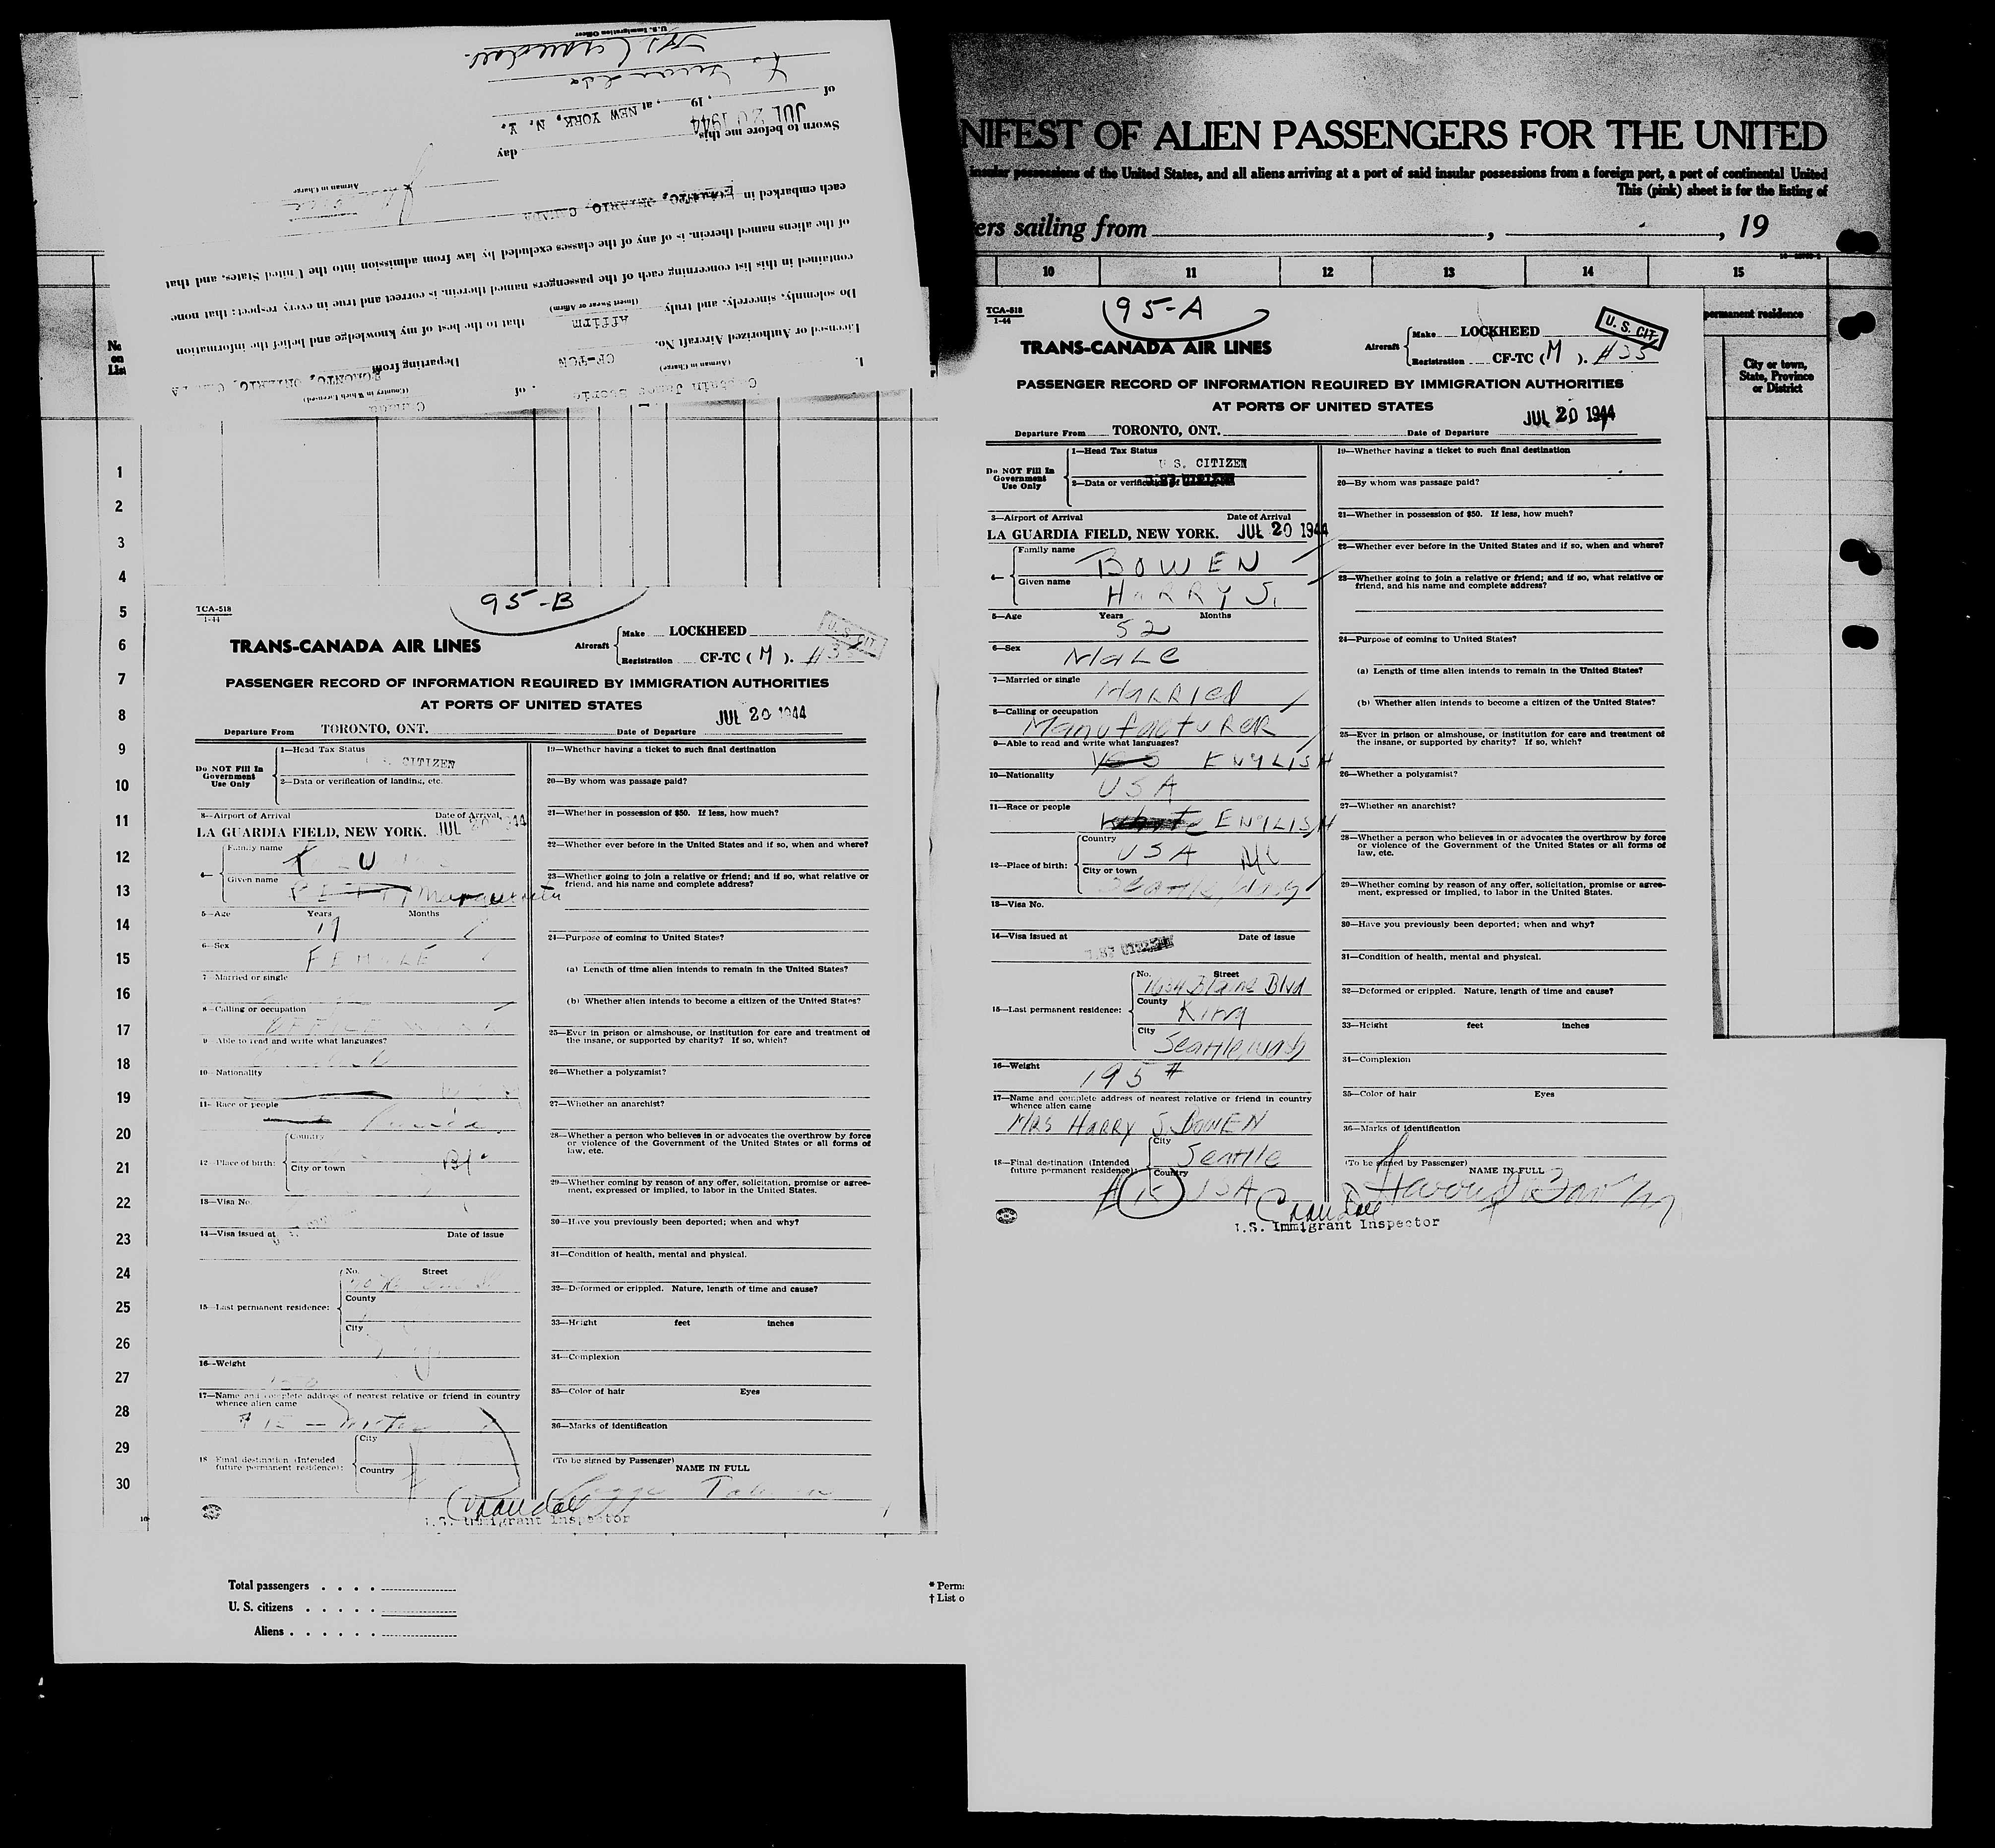 U.S. Immigration Officer
of
, 19
, at NEW YORK, N. Y.
JUL 20 1944
Sworn to before me this
day
Airman in Charge
each embarked in
TORONTO, ONTARIO, CANADA
of the aliens named therein, is of any of the classes excluded by law from admission into the United States, and that
contained in this list concerning each of the passengers named therein, is correct and true in every respect; that none
Do solemnly, sincerely, and truly
Affirm
(Insert Swear or Affirm)
that to the best of my knowledge and belief the information
Licensed or Authorized Aircraft No.
CF-TCM
Departing from
TORONTO, ONTARIO,
I,
Captain James
(Airman in Charge)
of
Canada
(Country in Which Licensed)
No.
on
List
1
2
3
4
5
6
7
8
9
10
11
12
13
14
15
16
17
18
19
20
21
22
23
24
25
26
27
28
29
30
TCA-518
1-44
95-B
TRANS-CANADA AIR LINES
Aircraft
Make LOCKHEED
Registration CF-TC ( M ).
U. S. CIT.
PASSENGER RECORD OF INFORMATION REQUIRED BY IMMIGRATION AUTHORITIES
AT PORTS OF UNITED STATES
JUL 20 1944
Departure From TORONTO, ONT. Date of Departure
Do NOT Fill In
Government
Use Only
1—Head Tax Status
U.S. CITIZEN
2—Data or verification of landing, etc.
3—Airport of Arrival Date of Arrival
LA GUARDIA FIELD, NEW YORK. JUL 20 1944
4—
Family name
Given name
5—Age Years Months
19
6—Sex
FEMALE
7—Married or single
8—Calling or occupation
9—Able to read and write what languages?
10—Nationality
11—Race or people
12—Place of birth:
Country
City or town
13—Visa No.
14—Visa issued at Date of issue
15—Last permanent residence:
No. Street
County
City
16—Weight
17—Name and complete address of nearest relative or friend in country
whence alien came
18—Final destination (Intended
future permanent residence):
City
Country
19—Whether having a ticket to such final destination
20—By whom was passage paid?
21—Whether in possession of $50. If less, how much?
22—Whether ever before in the United States and if so, when and where?
23—Whether going to join a relative or friend; and if so, what relative or
friend, and his name and complete address?
24—Purpose of coming to United States?
(a) Length of time alien intends to remain in the United States?
(b) Whether alien intends to become a citizen of the United States?
25—Ever in prison or almshouse, or institution for care and treatment of
the insane, or supported by charity? If so, which?
26—Whether a polygamist?
27—Whether an anarchist?
28—Whether a person who believes in or advocates the overthrow by force
or violence of the Government of the United States or all forms of
law, etc.
29—Whether coming by reason of any offer, solicitation, promise or agree-
ment, expressed or implied, to labor in the United States.
30—Have you previously been deported; when and why?
31—Condition of health, mental and physical.
32—Deformed or crippled. Nature, length of time and cause?
33—Height feet inches
34—Complexion
35—Color of hair Eyes
36—Marks of identification
(To be signed by Passenger)
NAME IN FULL
Crandall
U.S. Immigrant Inspector
Total passengers
U. S. citizens
Aliens
* Perm
† List o
NIFEST OF ALIEN PASSENGERS FOR THE UNITED
insular possessions of the United States, and all aliens arriving at a port of said insular possessions from a foreign port, a port of continental United
This (pink) sheet is for the listing of
ers sailing from , , 19
10 11 12 13 14 15
permanent residence
City or town,
State, Province
or District
TCA-518
1-44
95-A
TRANS-CANADA AIR LINES
Aircraft
Make LOCKHEED
Registration CF-TC ( M ).
U. S. CIT.
PASSENGER RECORD OF INFORMATION REQUIRED BY IMMIGRATION AUTHORITIES
AT PORTS OF UNITED STATES
JUL 20 1944
Departure From TORONTO, ONT. Date of Departure
Do NOT Fill In
Government
Use Only
1—Head Tax Status
U. S. CITIZEN
2—Data or verification of
3—Airport of Arrival Date of Arrival
LA GUARDIA FIELD, NEW YORK. JUL 20 1944
4—
Family name
BOWEN
Given name
HARRY S.
5—Age Years Months
52
6—Sex
Male
7—Married or single
Married
8—Calling or occupation
Manufacturer
9—Able to read and write what languages?
Yes ENGLISH
10—Nationality
USA
11—Race or people
White ENGLISH
12—Place of birth:
Country
USA
City or town
Seattle, Wash
13—Visa No.
14—Visa issued at Date of issue
15—Last permanent residence:
No. Street
1604 Blaine Blvd
County
King
City
Seattle, Wash
16—Weight
195 #
17—Name and complete address of nearest relative or friend in country
whence alien came
MRS HARRY S. BOWEN
18—Final destination (Intended
future permanent residence):
City
Seattle
Country
# 15 USA
19—Whether having a ticket to such final destination
20—By whom was passage paid?
21—Whether in possession of $50. If less, how much?
22—Whether ever before in the United States and if so, when and where?
23—Whether going to join a relative or friend; and if so, what relative or
friend, and his name and complete address?
24—Purpose of coming to United States?
(a) Length of time alien intends to remain in the United States?
(b) Whether alien intends to become a citizen of the United States?
25—Ever in prison or almshouse, or institution for care and treatment of
the insane, or supported by charity? If so, which?
26—Whether a polygamist?
27—Whether an anarchist?
28—Whether a person who believes in or advocates the overthrow by force
or violence of the Government of the United States or all forms of
law, etc.
29—Whether coming by reason of any offer, solicitation, promise or agree-
ment, expressed or implied, to labor in the United States.
30—Have you previously been deported; when and why?
31—Condition of health, mental and physical.
32—Deformed or crippled. Nature, length of time and cause?
33—Height feet inches
34—Complexion
35—Color of hair Eyes
36—Marks of identification
(To be signed by Passenger)
NAME IN FULL
Crandall
U.S. Immigrant Inspector